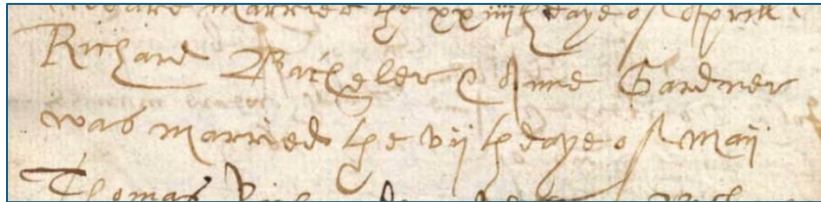 married the xxiiijth daye of Aprill
Richard Batcheler & Anne Gardner
was married the vijth daye of Maij
Thomas